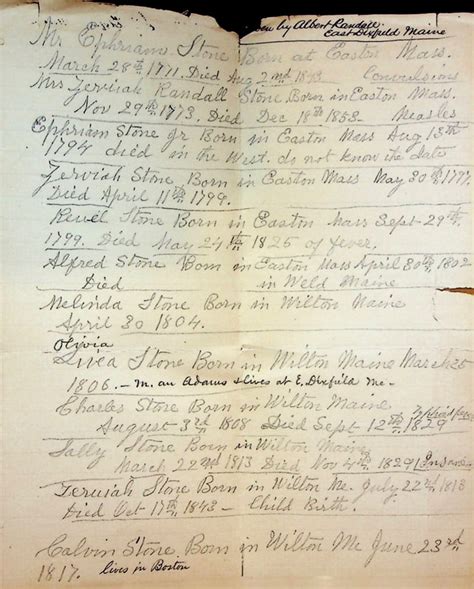 en by Albert Randall
East Dixfield Maine
Mr Ephriam Stone Born at Easton Mass.
March 28th 1771. Died Aug 2nd 1843 Convulsions
Mrs Zerviah Randall Stone Born in Easton Mass.
Nov 29th 1773. Died Dec 18th 1853 Measles
Ephriam Stone Jr Born in Easton Mass Aug 13th
1794 died in the West. do not know the date
Zerviah Stone Born in Easton Mass May 30th 1797
Died April 11th 1799.
Revel Stone Born in Easton Mass Sept 29th
1799. Died May 24th 1825 of fever.
Alfred Stone Born in Easton Mass April 30th 1802
Died in Weld Maine
Melinda Stone Born in Wilton Maine
April 30 1804.
Olivia
Livea Stone Born in Wilton Maine March 25
1806. - m. an Adams & lives at E. Dixfield Me-
Charles Stone Born in Wilton Maine
August 3rd 1808 Died Sept 12th 1829
Sally Stone Born in Wilton Maine
March 22nd 1813 Died Nov 4th 1829 Insane
Zeruiah Stone Born in Wilton Me. July 22nd 1813
Died Oct 17th 1843 - Child Birth.
Calvin Stone Born in Wilton Me June 23rd
1817. lives in Boston